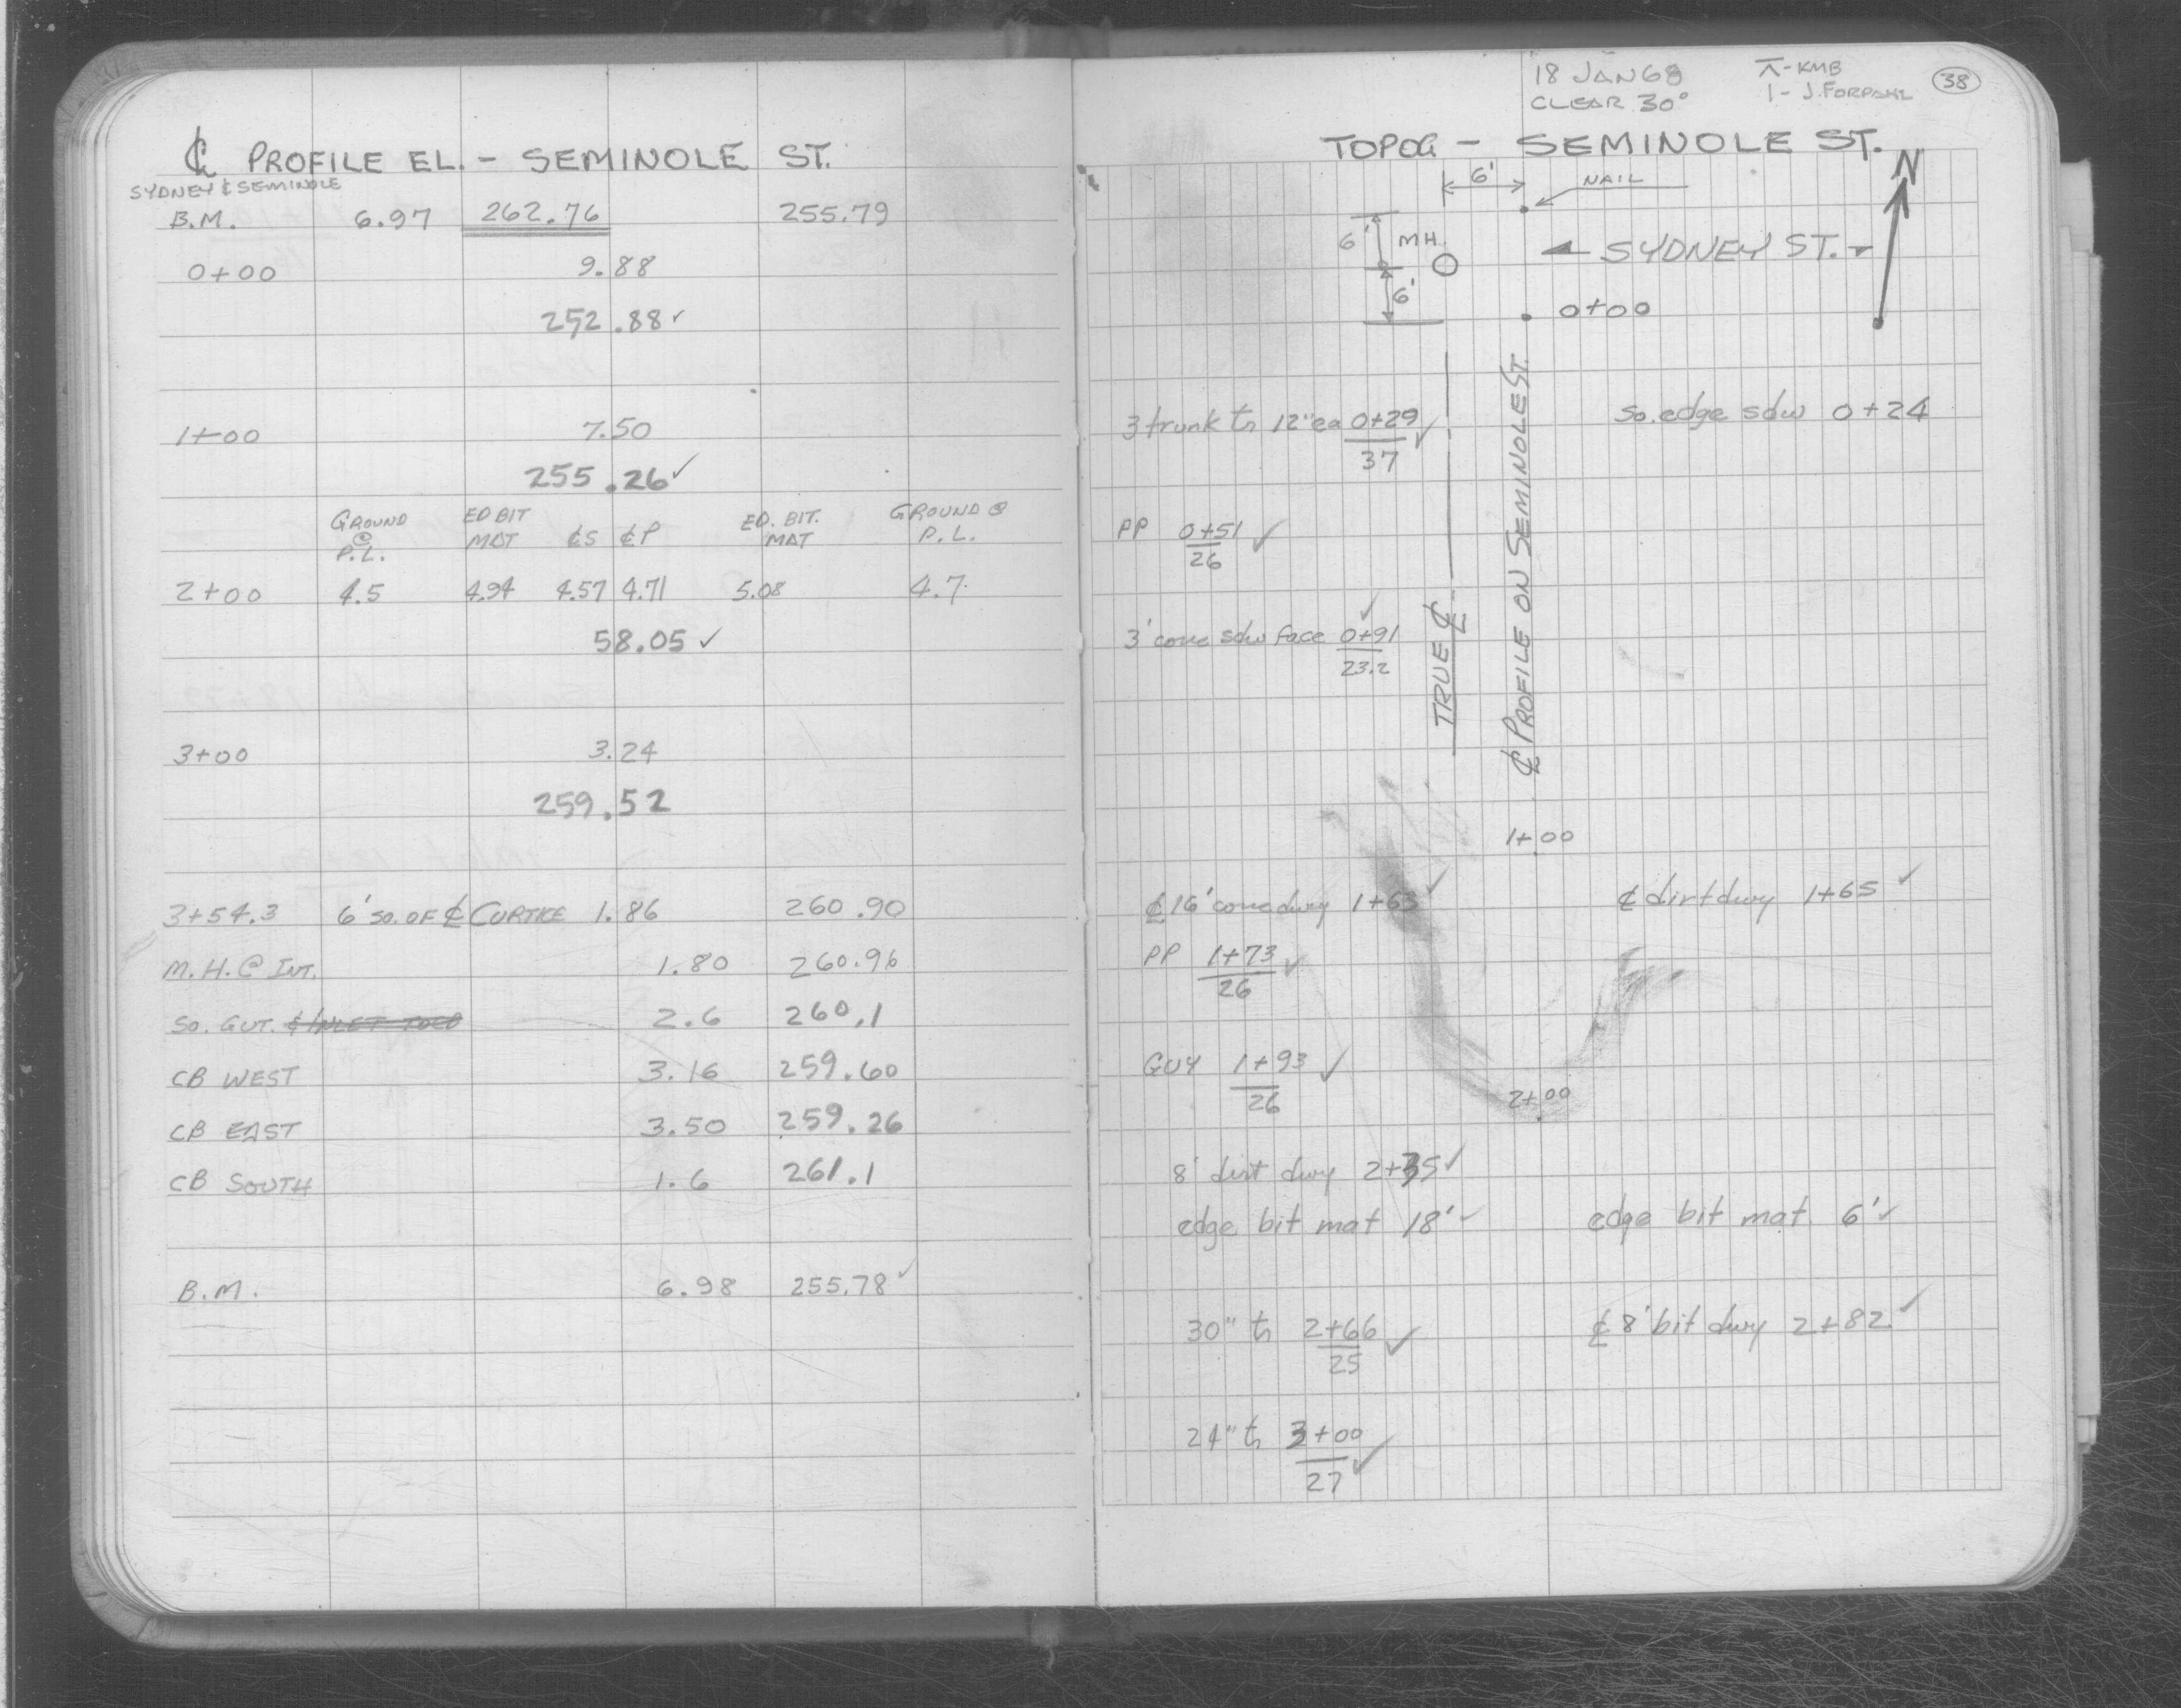 ℄ PROFILE EL. - SEMINOLE ST.
SYDNEY & SEMINOLE
B.M. 6.97 262.76 255.79
0+00 9.88
252.88 ✓
1+00 7.50
255.26 ✓
GROUND @ P.L. ED BIT MAT ℄S ℄P ED. BIT. MAT GROUND @ P.L.
2+00 4.5 4.94 4.57 4.71 5.08 4.7
58.05 ✓
3+00 3.24
259.52
3+54.3 6' SO. OF ℄ CURTICE 1.86 260.90
M.H. @ INT. 1.80 260.96
SO. GUT. 2.6 260.1
CB WEST 3.16 259.60
CB EAST 3.50 259.26
CB SOUTH 1.6 261.1
B.M. 6.98 255.78 ✓
18 JAN 68
CLEAR 30°
⊼ - KMB
1 - J. FORPAHL
38
TOPOG - SEMINOLE ST.
N
6' NAIL
6' MH. SYDNEY ST.
6' 0+00
TRUE ℄
℄ PROFILE ON SEMINOLE ST.
3 trunk tr 12" ea 0+29 ✓
37
so. edge sdw 0+24
PP 0+51 ✓
26
3' conc sdw face 0+91 ✓
23.2
1+00
℄ 16' conc dwy 1+63 ✓
℄ dirt dwy 1+65 ✓
PP 1+73 ✓
26
GUY 1+93 ✓
26
2+00
8' dirt dwy 2+35 ✓
edge bit mat 18' ✓
edge bit mat. 6' ✓
30" tr 2+66 ✓
25
℄ 8' bit dwy 2+82 ✓
24" tr 3+00 ✓
27